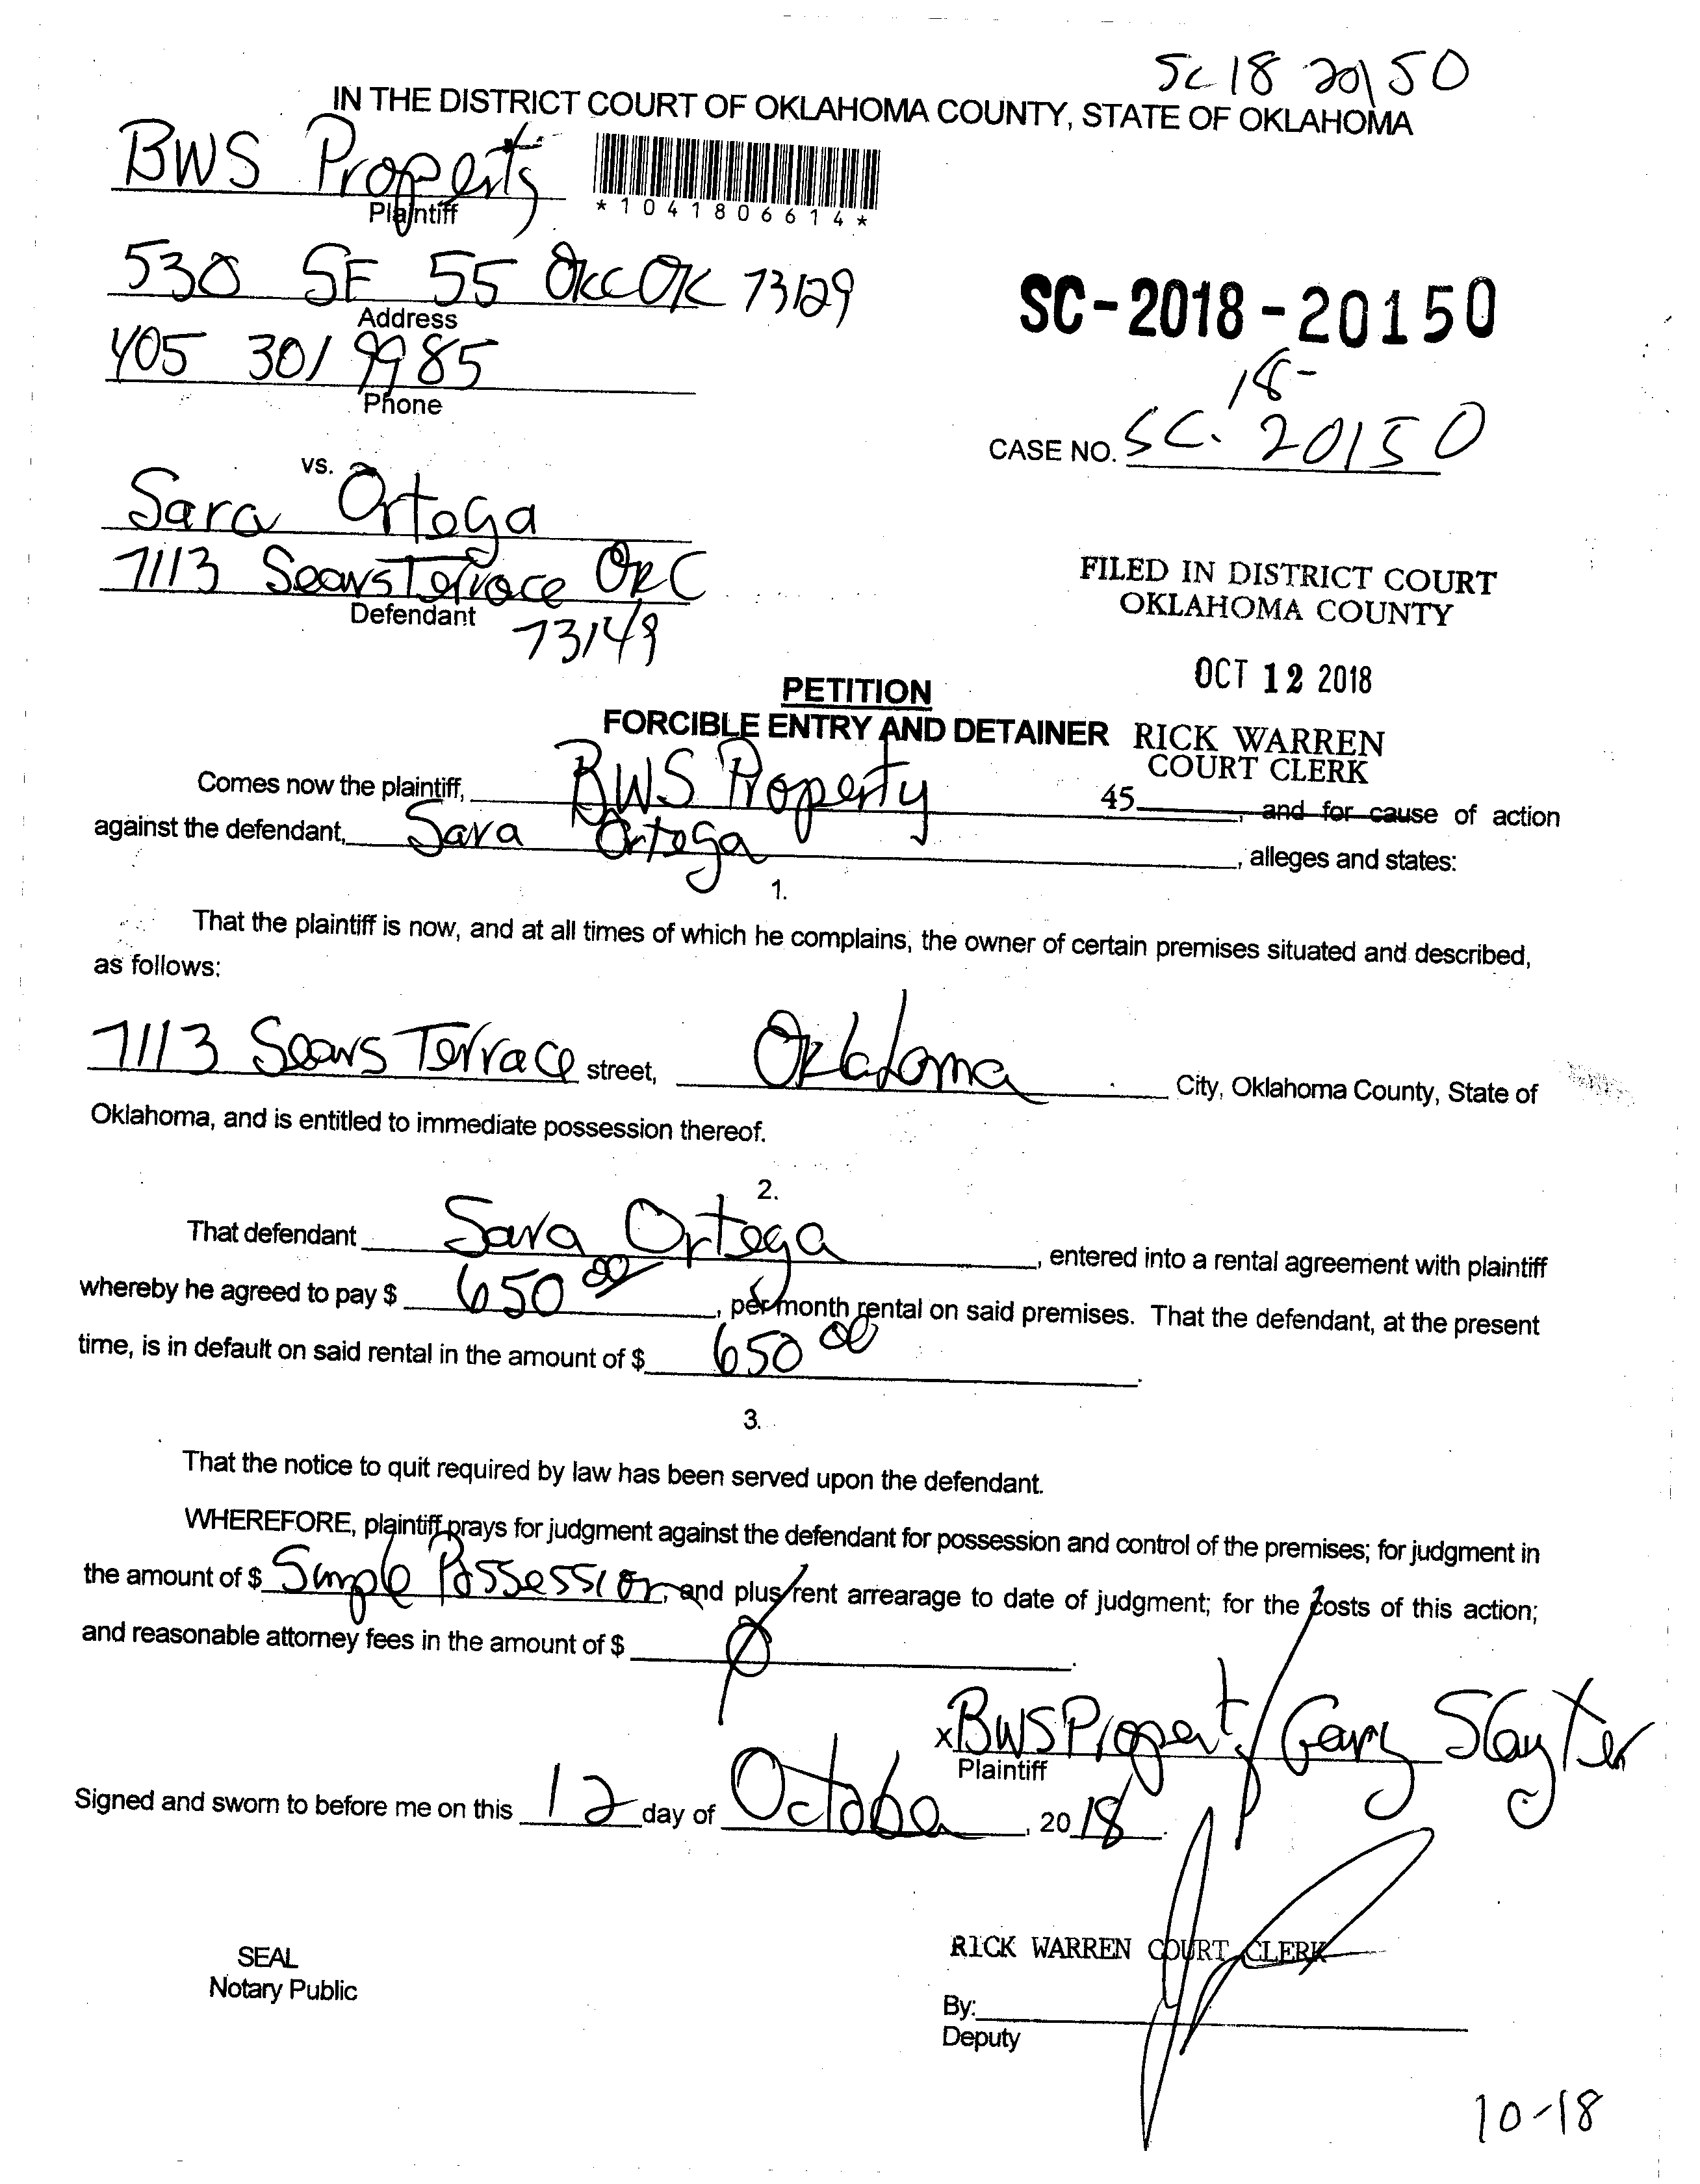 SC 18 20150
IN THE DISTRICT COURT OF OKLAHOMA COUNTY, STATE OF OKLAHOMA
BWS Property
Plaintiff
*1041806614*
530 SE 55 OKC OK 73129
Address
SC-2018-20150
405 301 9985
Phone
18-
CASE NO. SC. 20150
vs.
Sara Ortega
7113 Sears Terrace OKC
Defendant
73149
FILED IN DISTRICT COURT
OKLAHOMA COUNTY
OCT 12 2018
PETITION
FORCIBLE ENTRY AND DETAINER
RICK WARREN
COURT CLERK
Comes now the plaintiff, BWS Property 45 , and for cause of action
against the defendant, Sara Ortega , alleges and states:
1.
That the plaintiff is now, and at all times of which he complains, the owner of certain premises situated and described,
as follows:
7113 Sears Terrace street, Oklahoma City, Oklahoma County, State of
Oklahoma, and is entitled to immediate possession thereof.
2.
That defendant Sara Ortega , entered into a rental agreement with plaintiff
whereby he agreed to pay $ 650 00 , per month rental on said premises. That the defendant, at the present
time, is in default on said rental in the amount of $ 650 00 .
3.
That the notice to quit required by law has been served upon the defendant.
WHEREFORE, plaintiff prays for judgment against the defendant for possession and control of the premises; for judgment in
the amount of $ Simple Possession, and plus rent arrearage to date of judgment; for the costs of this action;
and reasonable attorney fees in the amount of $ Ø .
x BWS Property / Gary Slayter
Plaintiff
Signed and sworn to before me on this 12 day of October , 20 18 .
RICK WARREN COURT CLERK
SEAL
Notary Public
By:
Deputy
10-18